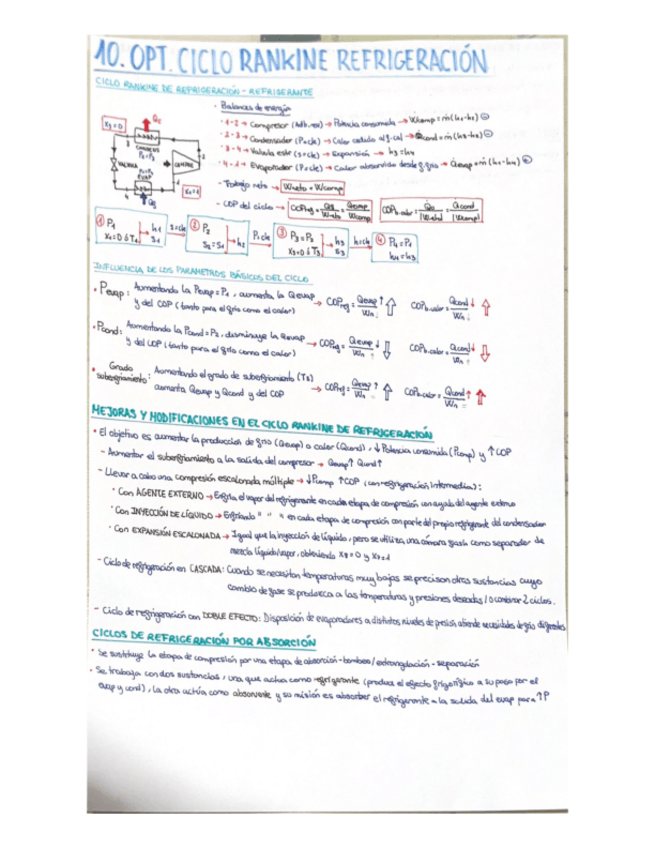 10. OPT. CICLO RANKINE REFRIGERACIÓN
CICLO RANKINE DE REFRIGERACIÓN - REFRIGERANTE
• Balances de energía
· 1-2 → Compresor → Potencia consumida → Ẇcomp = ṁ(h1-h2) ⊖
· 2-3 → Condensador (P=cte) → Calor cedido al f.cal → Q̇cond = ṁ(h3-h2) ⊖
· 3-4 → Válvula → Expansión → h3=h4
· 4-1 → Evaporador (P=cte) → Calor absorbido desde f.frío → Q̇evap = ṁ(h1-h4) ⊕
- Trabajo neto → Wneto = Wcomp
- COP del ciclo →
X3=0
Qc
P2=P3
VÁLVULA
EVAP
X1=1
① P1 h1 S1
S=cte
② P2 S2=S1 → h2
P=cte
③ P3=P2 X3=0 ó T3 h3 S3
h=cte
④ P4=P1 h4=h3
INFLUENCIA DE LOS PARÁMETROS BÁSICOS DEL CICLO
• Pevap: Aumentando la Pevap = P1, aumenta la Qevap
y del COP (tanto para el frío como el calor)
• Pcond: Aumentando la Pcond = P2, disminuye la Qevap
y del COP (tanto para el frío como el calor)
• Grado subenfriamiento: Aumentando el grado de subenfriamiento (T3)
aumenta Qevap y Qcond y del COP
MEJORAS Y MODIFICACIONES EN EL CICLO RANKINE DE REFRIGERACIÓN
• El objetivo es aumentar la producción de frío (Qevap) o calor (Qcond), ↓ Potencia consumida (Pcomp) y ↑ COP
- Aumentar el subenfriamiento a la salida del compresor → Qevap↑ Qcond↑
- Llevar a cabo una compresión escalonada múltiple → ↓Pcomp ↑COP (con refrigeración intermedia):
· Con AGENTE EXTERNO → Enfría el vapor del refrigerante en cada etapa de compresión con ayuda del agente externo
· Con INYECCIÓN DE LÍQUIDO → Enfriando " " " en cada etapa de compresión con parte del propio refrigerante del condensador
· Con EXPANSIÓN ESCALONADA → Igual que la inyección de líquido, pero se utiliza una cámara flash como separador de
mezcla líquido/vapor, obteniendo
- Ciclo de refrigeración en CASCADA: Cuando se necesitan temperaturas muy bajas se precisan otras sustancias cuyo
cambio de fase se produzca a las temperaturas y presiones deseadas / o combinar 2 ciclos.
- Ciclo de refrigeración con DOBLE EFECTO: Disposición de evaporadores a distintos niveles de presión atiende necesidades de frío diferentes
CICLOS DE REFRIGERACIÓN POR ABSORCIÓN
• Se sustituye la etapa de compresión por una etapa de absorción - bombeo / estrangulación - separación
• Se trabaja con dos sustancias, una que actúa como refrigerante (produce el efecto frigorífico a su paso por el
evap y cond), la otra actúa como absorvente y su misión es absorber el refrigerante a la salida del evap para ↑P